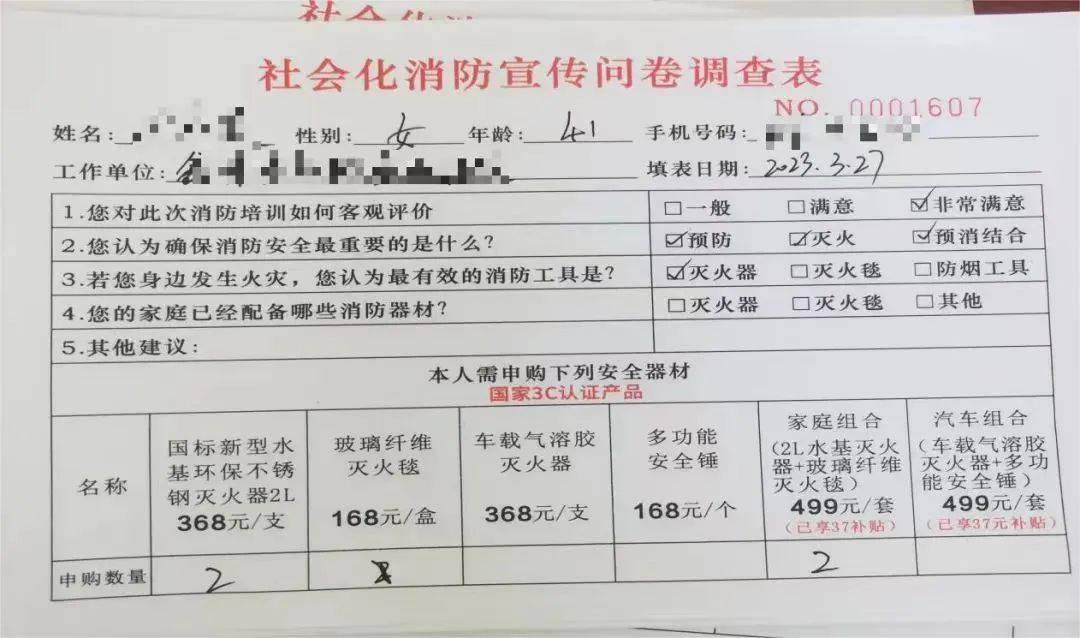 社会化消防宣传问卷调查表
NO. 0001607
姓名: 性别: 女 年龄: 41 手机号码:
工作单位: 填表日期: 2023.3.27
1.您对此次消防培训如何客观评价 □一般 □满意 ☑非常满意
2.您认为确保消防安全最重要的是什么? ☑预防 ☑灭火 ☑预消结合
3.若您身边发生火灾，您认为最有效的消防工具是? ☑灭火器 □灭火毯 □防烟工具
4.您的家庭已经配备哪些消防器材? □灭火器 □灭火毯 □其他
5.其他建议:
本人需申购下列安全器材
国家3C认证产品
名称
国标新型水
基环保不锈
钢灭火器2L
368元/支
玻璃纤维
灭火毯
168元/盒
车载气溶胶
灭火器
368元/支
多功能
安全锤
168元/个
家庭组合
(2L水基灭火
器+玻璃纤维
灭火毯)
499元/套
(已享37补贴)
汽车组合
(车载气溶胶
灭火器+多功
能安全锤)
499元/套
(已享37元补贴)
申购数量 2 2